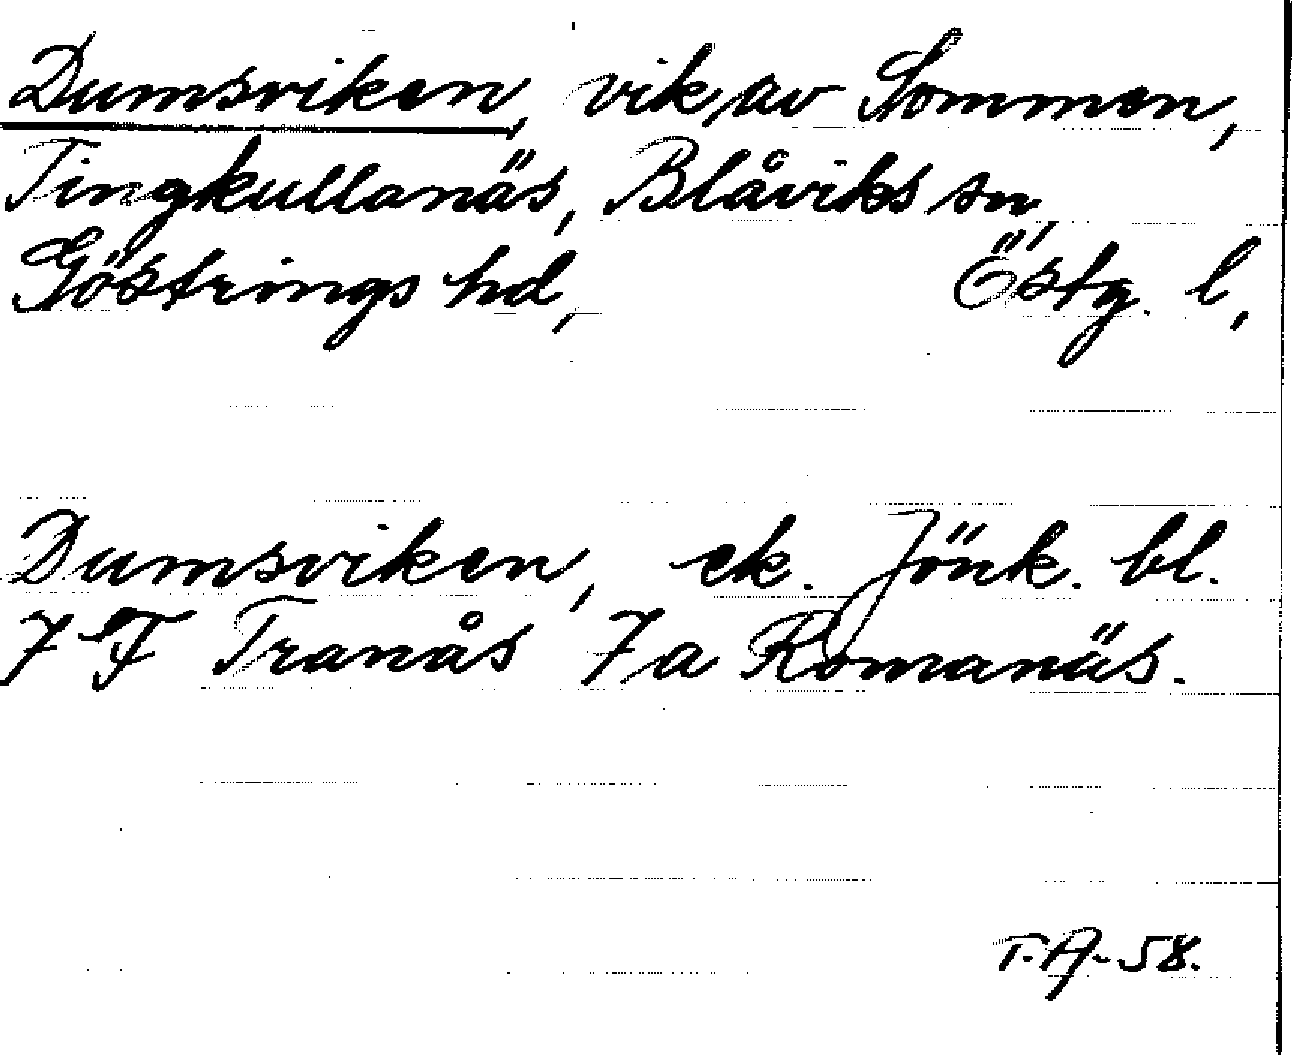 Dumsviken, vik av Sommen,
Tingkullanäs, Blåviks sn,
Göstrings hd, Östg. l,
Dumsviken, ek. Jönk. bl.
7 F Tranås 7a Romanäs.
T.A-58.